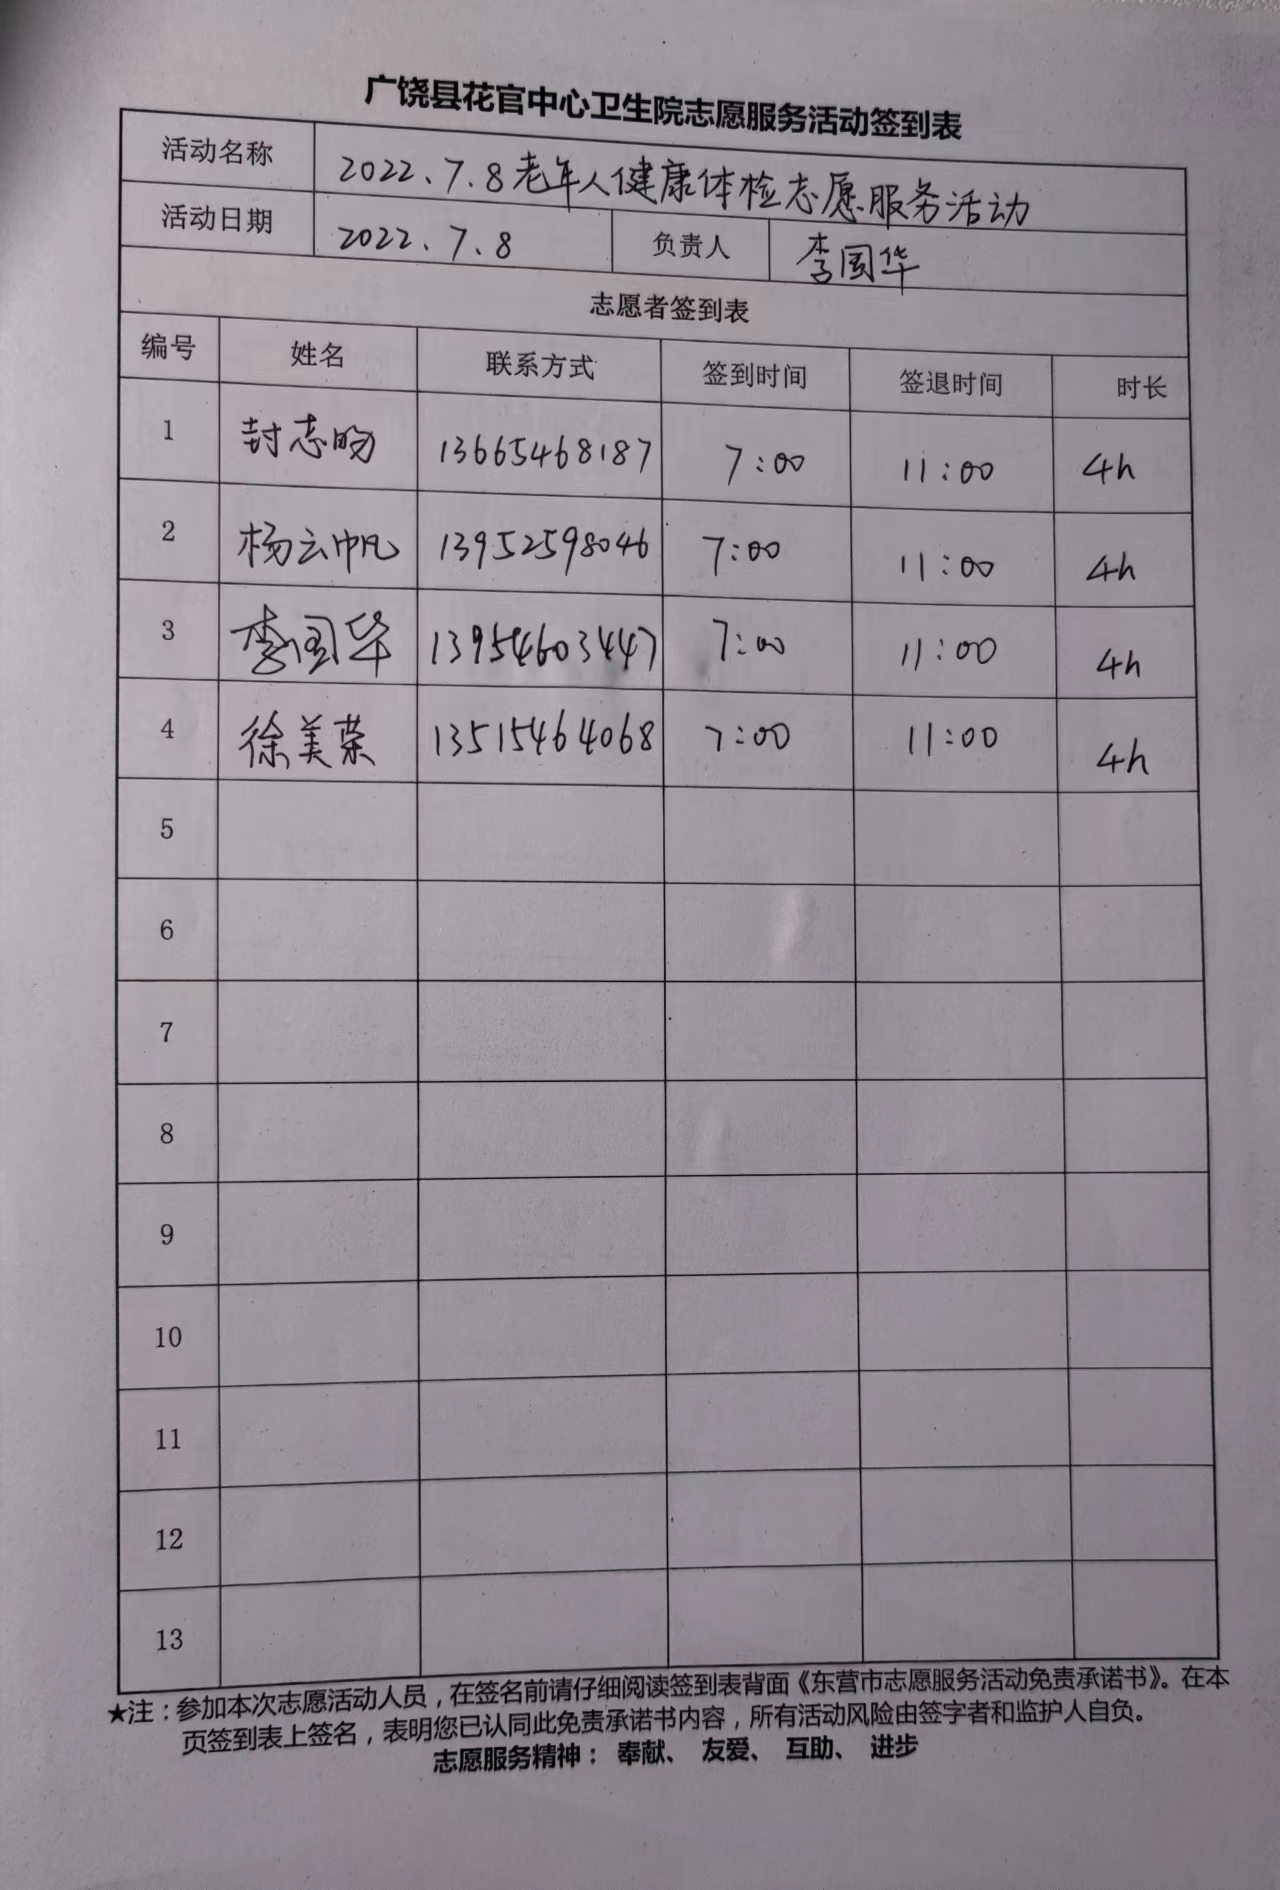 广饶县花官中心卫生院志愿服务活动签到表
活动名称 2022.7.8老年人健康体检志愿服务活动
活动日期 2022.7.8 负责人 李国华
志愿者签到表
编号 姓名 联系方式 签到时间 签退时间 时长
1 封志昀 13665468187 7:00 11:00 4h
2 杨云帆 13952598046 7:00 11:00 4h
3 李国华 13954603447 7:00 11:00 4h
4 徐美荣 13515464068 7:00 11:00 4h
5
6
7
8
9
10
11
12
13
★注：参加本次志愿活动人员，在签名前请仔细阅读签到表背面《东营市志愿服务活动免责承诺书》。在本
页签到表上签名，表明您已认同此免责承诺书内容，所有活动风险由签字者和监护人自负。
志愿服务精神： 奉献、 友爱、 互助、 进步